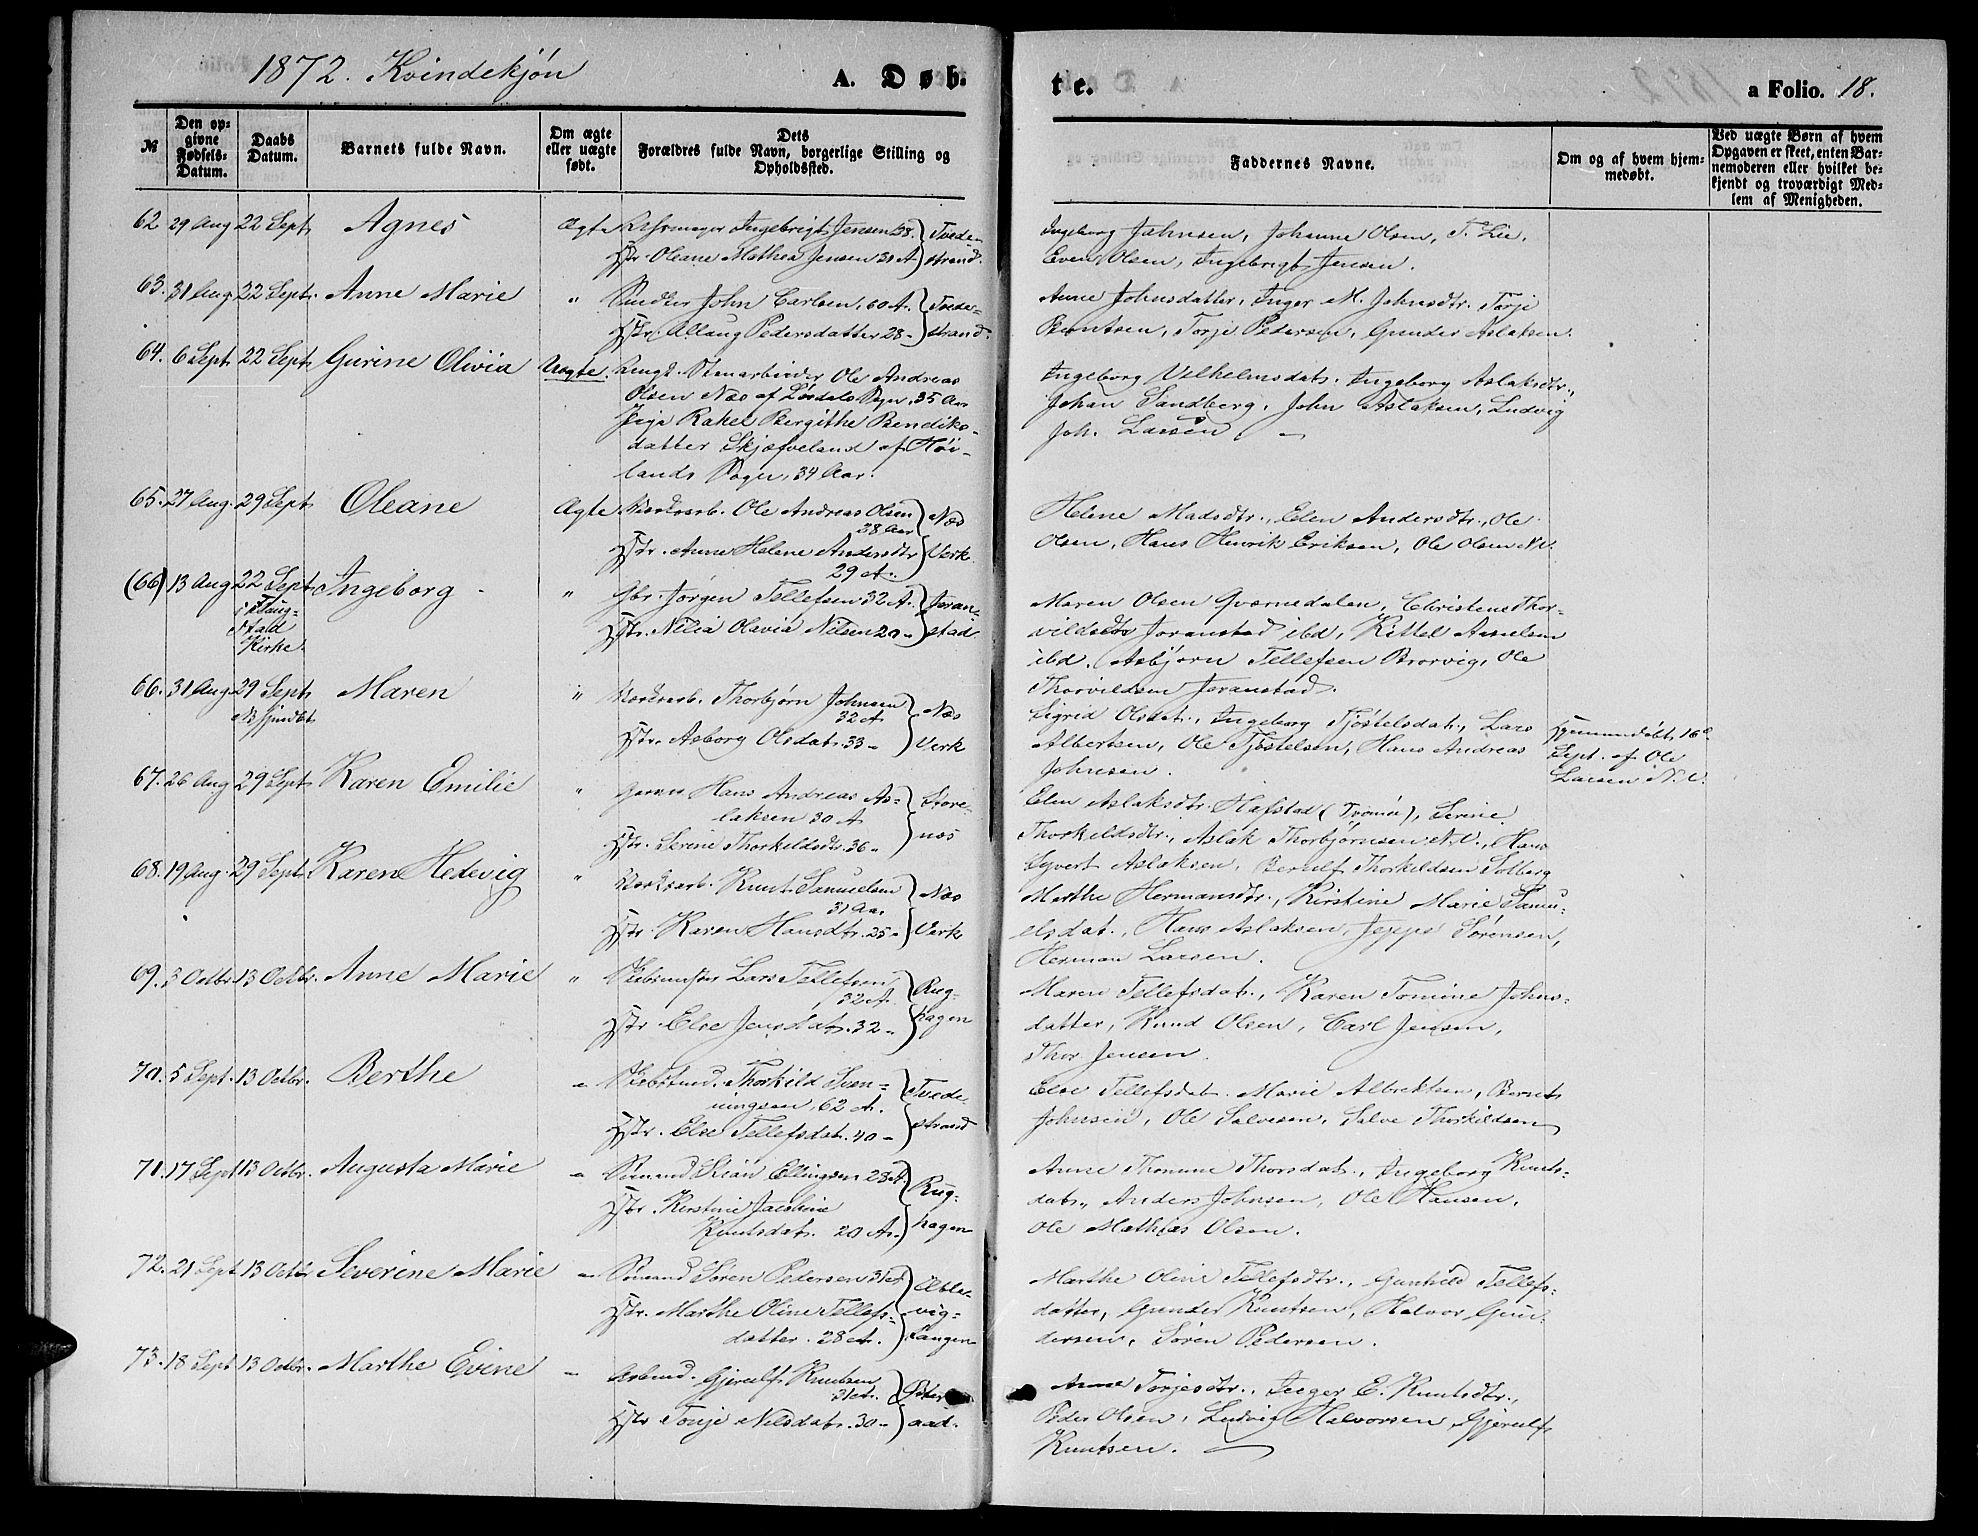 1872. Kvindekjøn
A. Døb-
te.
a Folio. 18.
№
Den opgivne Fødsels-Datum.
Daabs Datum.
Barnets fulde Navn.
Om ægte eller uægte født.
Dets Forældres fulde Navn, borgerlige Stilling og Opholdssted.
Faddernes Navne.
Om og af hvem hjemmedøbt.
Ved uægte Børn af hvem Opgaven er skeet, enten Barnemoderen eller hvilket bekjendt og troværdigt Medlem af Menigheden.
62 29 Aug 22 Sept. Agnes Ægte Ingebrigt Jensen 38. Tvede-
Hstr. Oleane Mathea Jensen 30 A strand.
Ingeborg Jahnsen, Johanne Olsen, T. Lie,
Even Olsen, Ingebrigt Jensen.
63. 31 Aug. 22 Sept. Anne Marie " John Carlsen, 60 A. Tvede-
Hstr. Allaug Pedersdatter 28 - strand.
Anne Johnsdatter, Inger M. Johnsdtr. Torje
Berntsen, Torje Pedersen, Gunder Aslaksen.
64. 6 Sept. 22 Sept. Gurine Olivia Uægte. Ungk. Stenarbeider Ole Andreas
Olsen Næs af Sogn, 35 Aar
Pige Rakel Bergithe Bendiks-
datter Skjæfveland af Høi-
lands Sogn, 34 Aar.
Ingeborg Vilhelmsdat. Ingeborg Aslaksdtr.,
Johan Sandberg, John Aslaksen, Ludvig
Joh. Larsen. -
65. 27 Aug. 29 Sept. Oleane Ægte Værksarb. Ole Andreas Olsen Næs
38 Aar
Hstr. Anne Helene Andersdtr Verk.
29 A.
Helene Madsdtr., Elen Andersdtr., Ole
Olsen, Hans Henrik Eriksen, Ole Olsen N.V.
(66) 13 Aug 22 Sept. Ingeborg - " Gbr. Jørgen Tellefsen 32 A. Joran-
i Flaug-
stad
Kirke.
Hstr. Nilia Olavia Nilsen 20 - stad
Maren Olsen Qvernedalen, Christene Thor-
vildsdtr Joranstad ibd, Kittel Asselsen
ibd. Asbjørn Tellefsen Brorvig, Ole
Thorvildsen Joranstad.
66. 31 Aug. 29 Sept. Maren " Værksarb. Thorbjørn Johnsen Næs
32 A
Hstr. Asborg Olsdat. 33 - Verk
Sigrid Olsdat., Ingeborg Tjøstelsdat., Lars
Albertsen, Ole Tjøstelsen, Hans Andreas
Johnsen.
Hjemmedøbt 16de
Sept. af Ole
Larsen N.V.
67. 26 Aug 29 Sept. Karen Emilie " Hans Andreas As- Store-
laksen 30 A
Hstr. Serine Thorkildsdtr. 36 - næs
Elen Aslaksdtr. Hafstad (Tromø), Serine
Thorkildsdtr., Aslak Thorbjørnsen N.V., Hans
Syvert Aslaksen, Berulf Thorkildsen Solberg
68. 19 Aug. 29 Sept. Karen Hedevig " Værksarb. Knut Samuelsen Næs
31 Aar
Hstr. Karen Hansdtr. 25 - Verk
Marthe Hermansdtr., Kirstine Marie Samu-
elsdat., Hans Aslaksen, Jeppe Sørensen,
Herman Larsen.
69. 3 Octbr. 13 Octbr. Anne Marie " Lars Tellefsen Rug-
32 A.
Hstr. Else Jensdat. 32 - hagen
Maren Tellefsdat., Karen Tomine Johns-
datter, Knud Olsen, Carl Jensen,
Thor Jensen.
70. 5 Sept. 13 Octbr. Berthe - Thorkild Sven- Tvede-
ningsen, 62 A.
Hstr. Else Tellefsdat. 40 - strand
Else Tellefsdat. Marie Albrektsen, Bernt
Johnsen, Ole Salvesen, Salve Thorkildsen
71. 17 Sept 13 Octbr. Augusta Marie - Sømand Ellingsen 28 A Rug-
Hstr. Kerstine Jacobine
Knutsdat. 20 A. hagen
Anne Thomine Thorsdat., Ingeborg Knuts-
dat., Anders Johnsen, Ole Hansen,
Ole Mathias Olsen.
72. 21 Sept 13 Octbr Severine Marie - Sømand Søren Pedersen 31 A
Hstr. Marthe Oline Tellefs- vig-
datter. 28 A. Langen
Marthe Oline Tellefsdtr., Gunhild Tellefs-
datter, Gunder Knutsen, Halvor Gun-
dersen, Søren Pedersen.
73. 18 Sept 13 Octbr. Marthe Evine - Arbmd. Gjerulf Knutsen Øster-
31 A.
Hstr Tonje Nilsdat. 30 - aad.
Anne Torjesdtr., Inger E. Knutsdtr.,
Peder Olsen, Ludvig Halvorsen, Gjerulf
Knutsen.